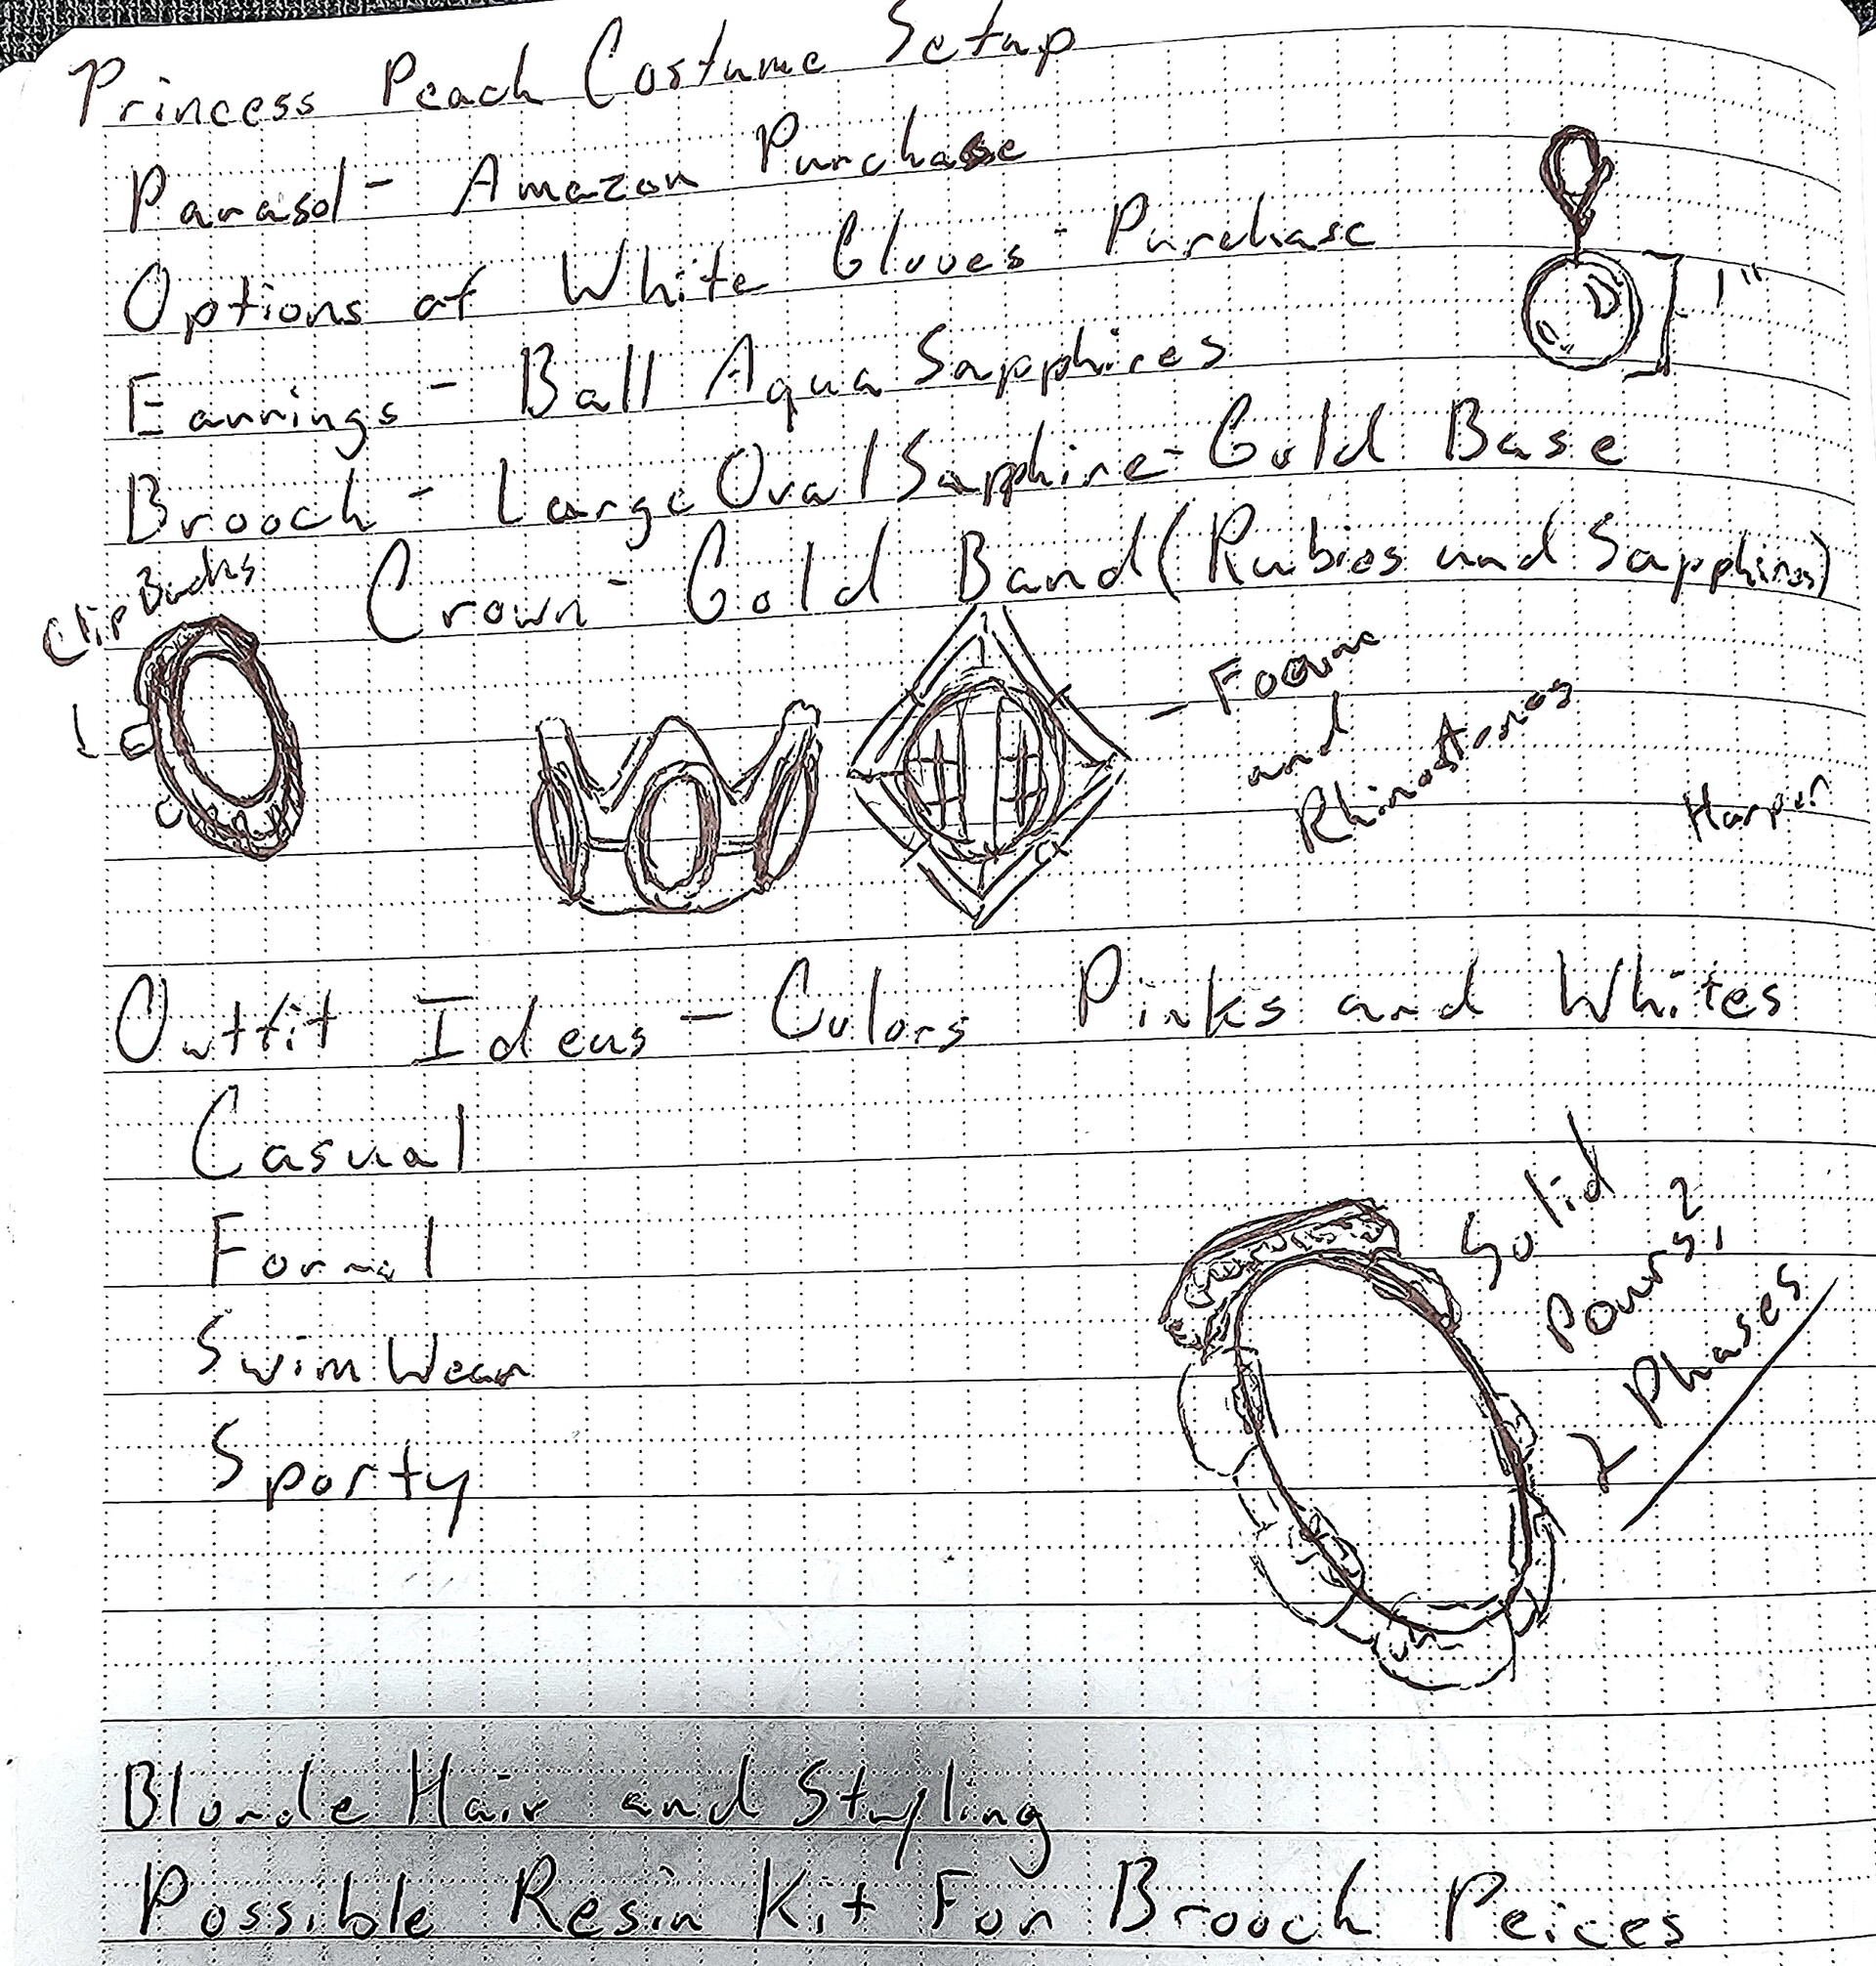 Princess Peach Costume Setup
Parasol - Amazon Purchase
Options of White Gloves - Purchase
1"
Earrings - Ball Aqua Sapphires
Brooch - Large Oval Sapphire - Gold Base
Crown - Gold Band (Rubies and Sapphires)
Clip Backs
- Foam
and
Rhinestones
Harper
Outfit Ideas - Colors Pinks and Whites
Casual
Formal
Swim Wear
Sporty
Solid
Pours
2 Phases
Blonde Hair and Styling
Possible Resin Kit For Brooch Peices